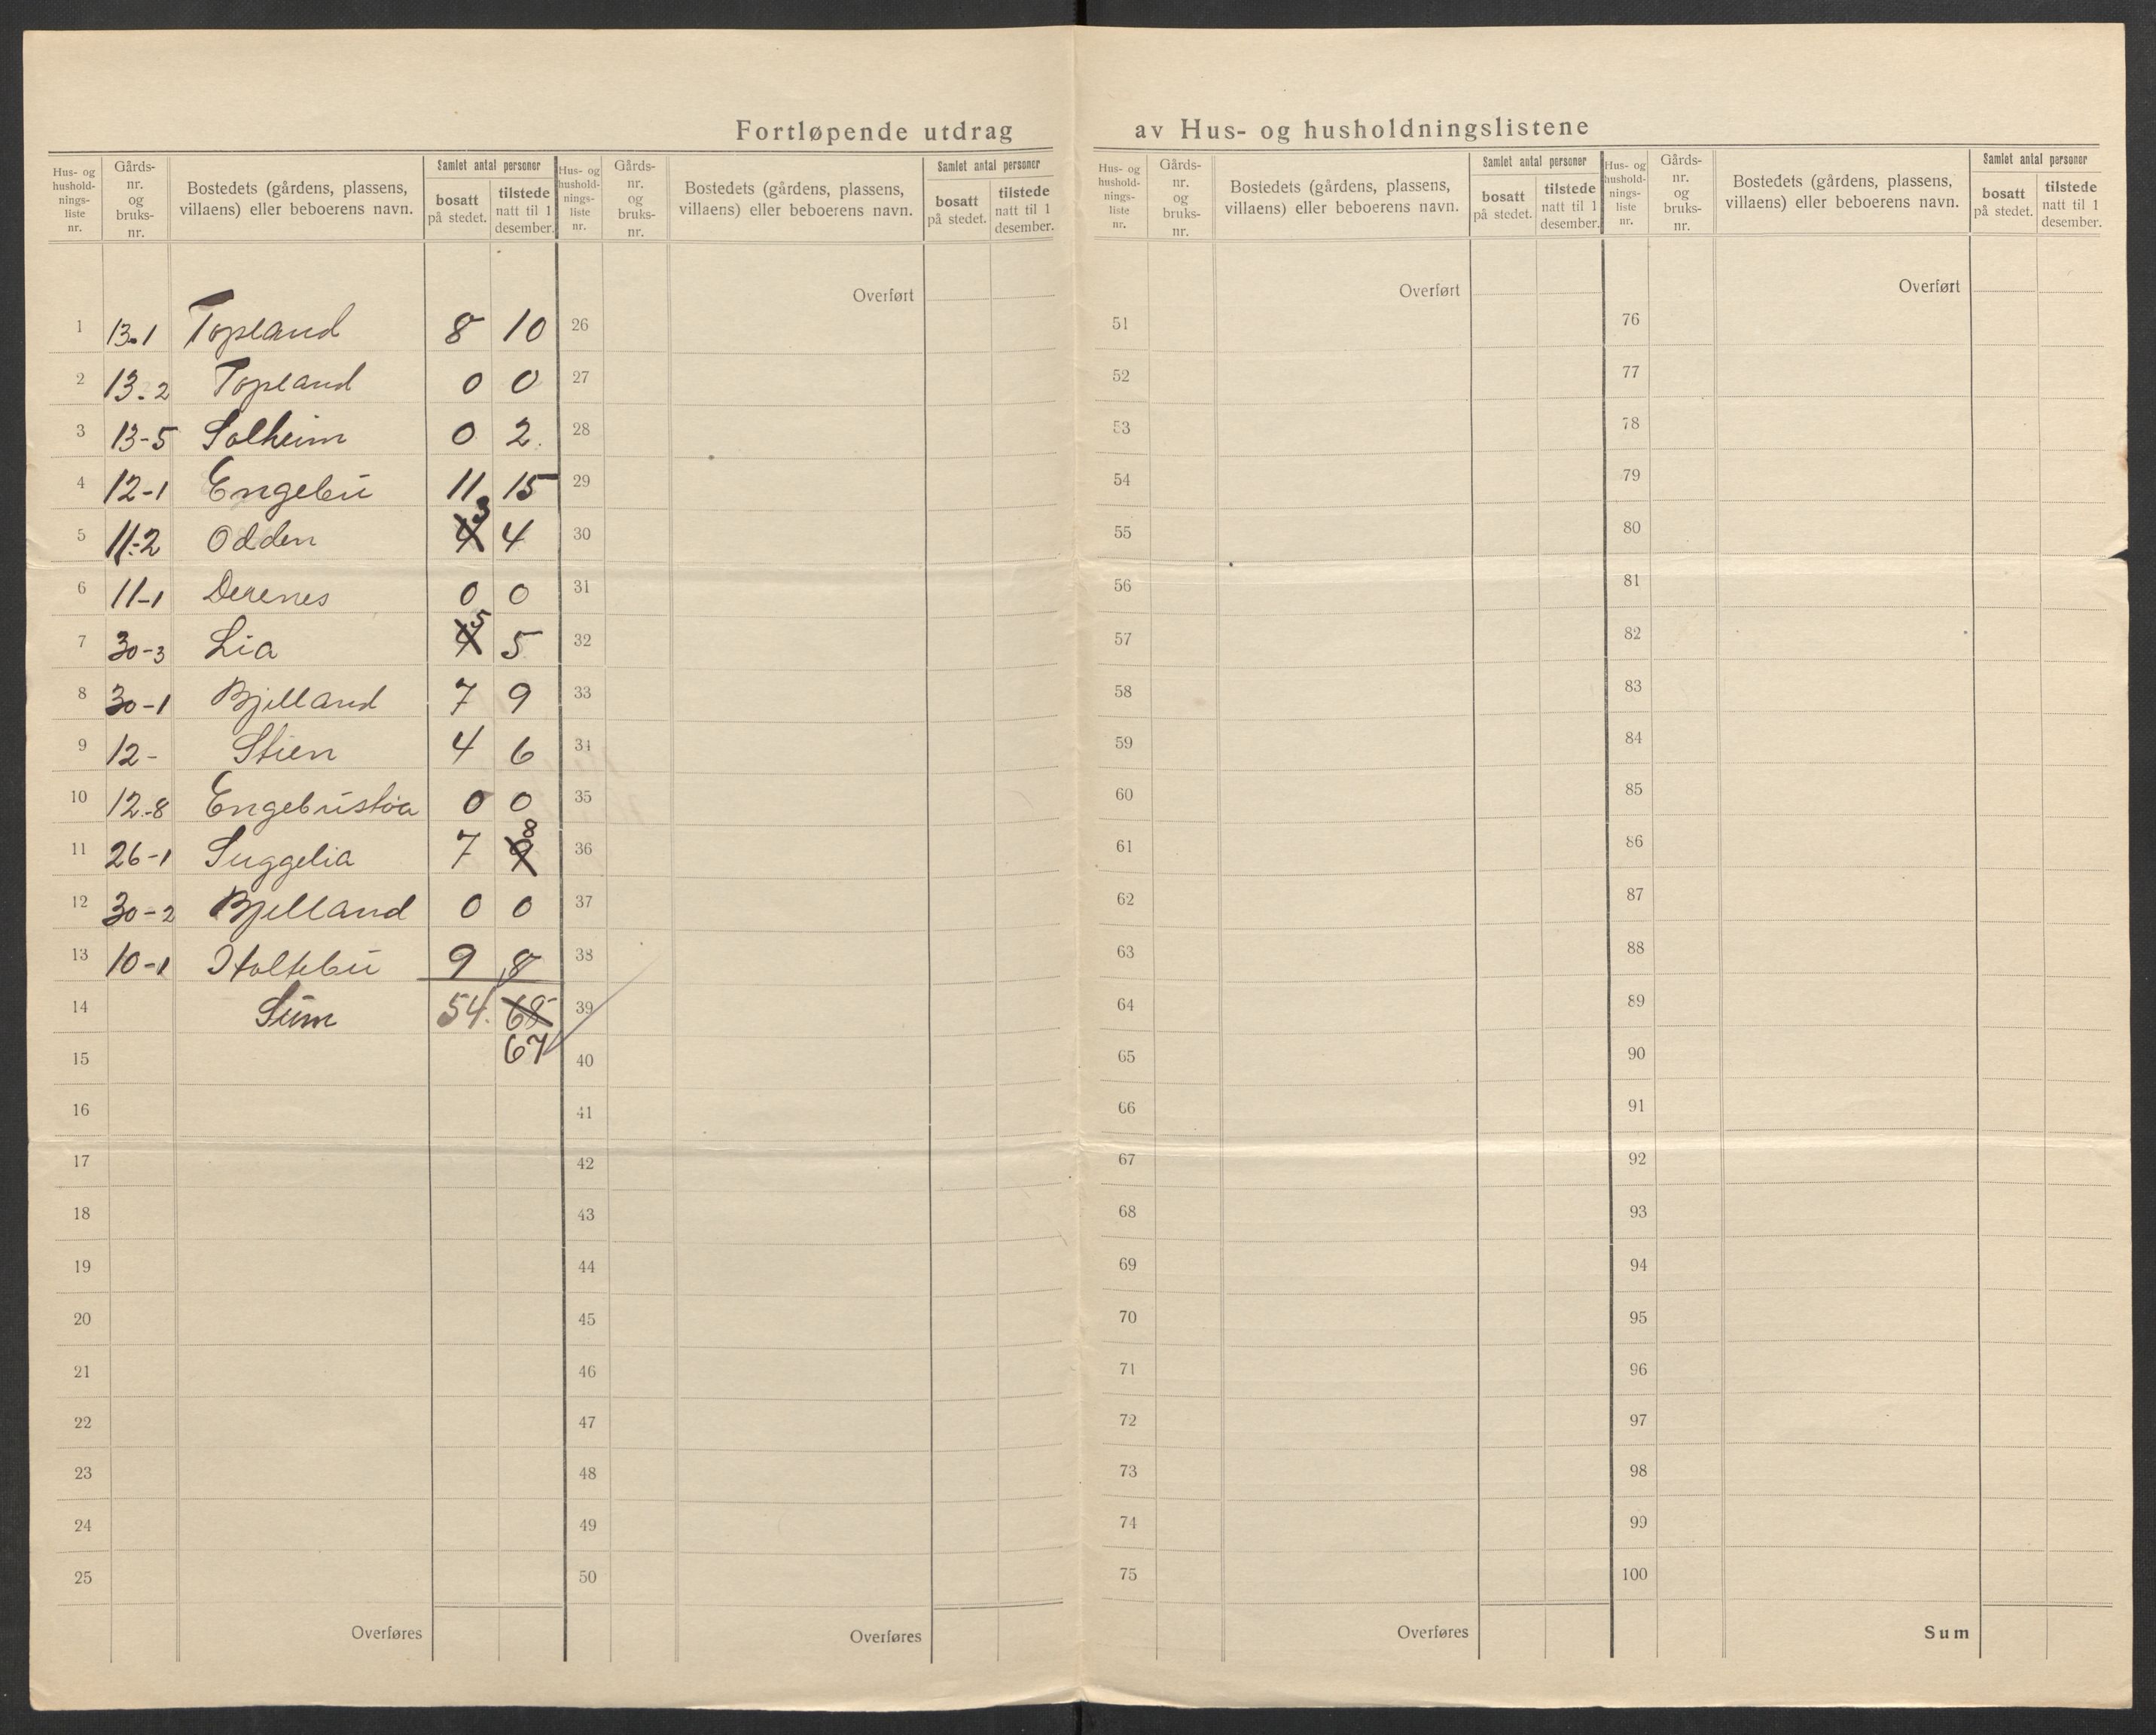 Fortløpende utdrag av Hus- og husholdningslistene
Hus- og hushold-nings-liste nr. Gårds-nr. og bruks-nr. Bostedets (gårdens, plassens, villaens) eller beboerens navn. Samlet antal personer bosatt på stedet. tilstede natt til 1 desember.
1 13.1 Topland 8 10
2 13-2 Topland 0 0
3 13-5 Solheim 0 2
4 12-1 Engebu 11 15
5 11-2 Odden 4 3 4
6 11-1 0 0
7 30-3 Lia 4 5 5
8 30-1 Bjelland 7 9
9 12- Stien 4 6
10 12-8 Engebustøa 0 0
11 26-1 Suggelia 7 9 8
12 30-2 Bjelland 0 0
13 10-1 Holtebu 9 8
14 Sum 54 68
15 67
16
17
18
19
20
21
22
23
24
25
Overføres
Hus- og hushold-nings-liste nr. Gårds-nr. og bruks-nr. Bostedets (gårdens, plassens, villaens) eller beboerens navn. Samlet antal personer bosatt på stedet. tilstede natt til 1 desember.
Overført
26
27
28
29
30
31
32
33
34
35
36
37
38
39
40
41
42
43
44
45
46
47
48
49
50
Overføres
Hus- og hushold-nings-liste nr. Gårds-nr. og bruks-nr. Bostedets (gårdens, plassens, villaens) eller beboerens navn. Samlet antal personer bosatt på stedet. tilstede natt til 1 desember.
Overført
51
52
53
54
55
56
57
58
59
60
61
62
63
64
65
66
67
68
69
70
71
72
73
74
75
Overføres
Hus- og hushold-nings-liste nr. Gårds-nr. og bruks-nr. Bostedets (gårdens, plassens, villaens) eller beboerens navn. Samlet antal personer bosatt på stedet. tilstede natt til 1 desember.
Overført
76
77
78
79
80
81
82
83
84
85
86
87
88
89
90
91
92
93
94
95
96
97
98
99
100
Sum